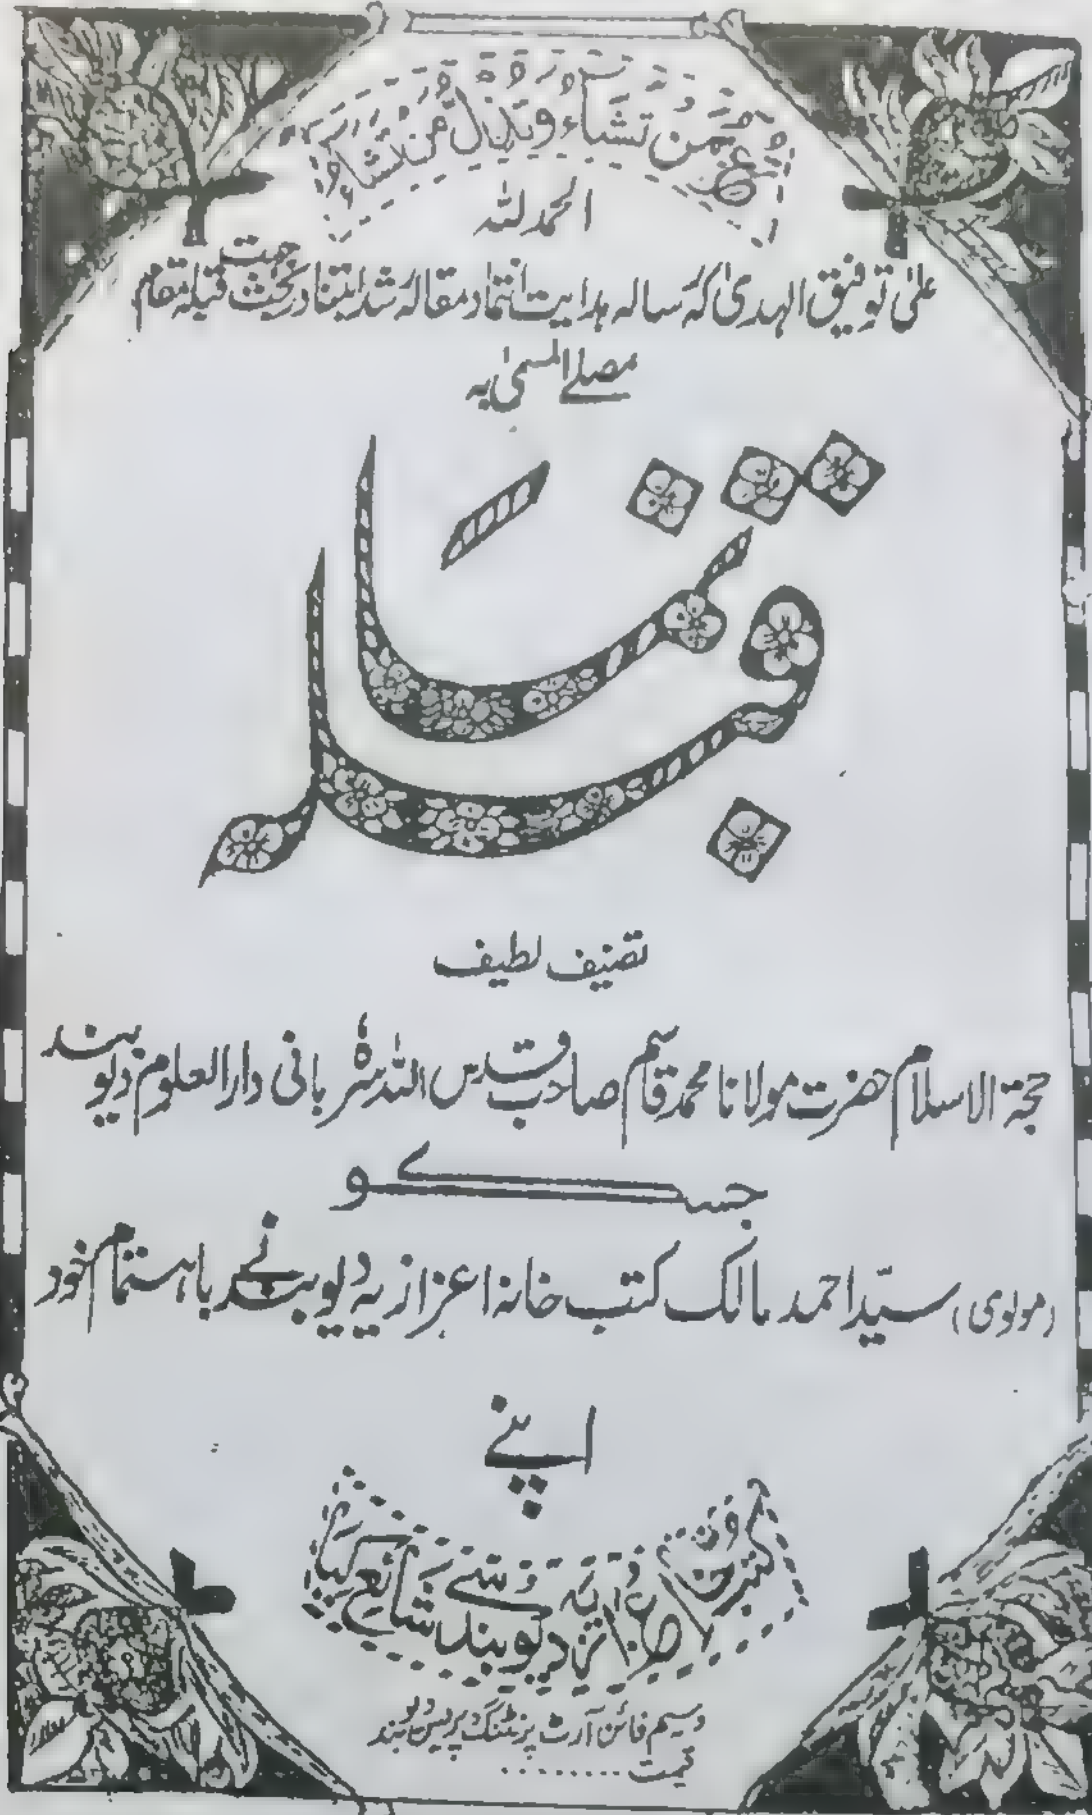 وَتُعِزُّ مَنْ تَشَاءُ وَتُذِلُّ مَنْ تَشَاءُ
الحمد للہ
علیٰ توفیق الہدیٰ کہ رسالہ ہدایت انتماد مقالہ رشد ابتنا در بحث جہت قبلہ مقام
مصلے المسمیٰ بہ
قبلہ نما
تصنیف لطیف
حجۃ الاسلام حضرت مولانا محمد قاسم صاحب قدس اللہ سرہٗ بانی دارالعلوم دیوبند
جسکو
(مولوی) سیّد احمد مالک کتب خانہ اعزازیہ دیوبند نے باہتمام خود
اپنے
کتب خانہ اعزازیہ دیوبند سے شائع کیا
وسیم فائن آرٹ پرنٹنگ پریس دیوبند
قیمت ........